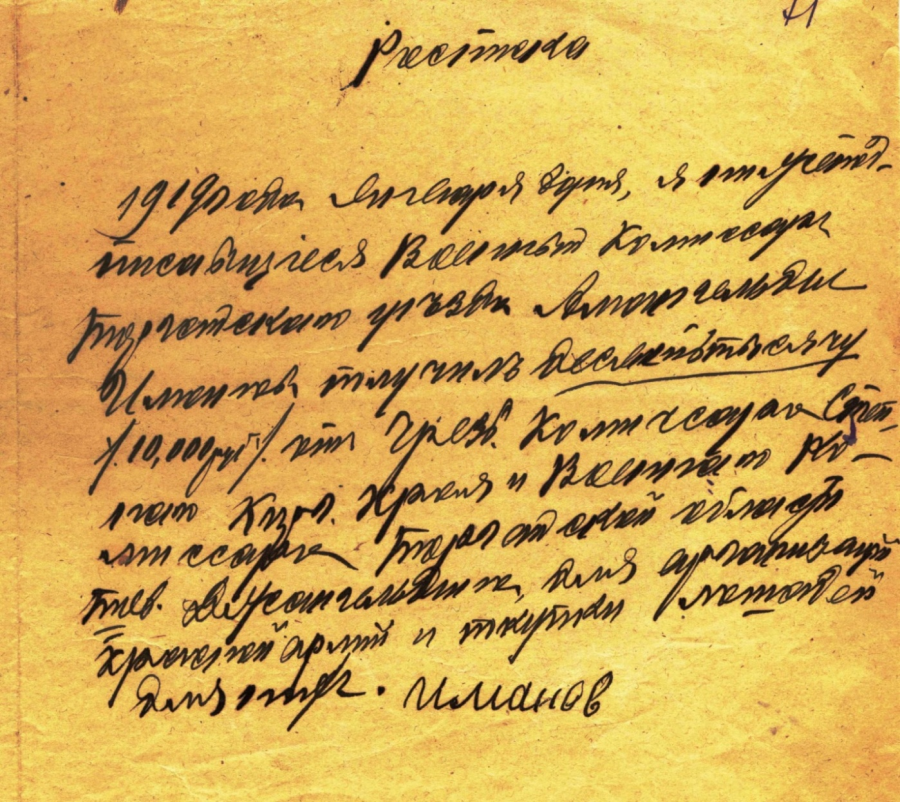 71
Росписка
1919 года Января 8 дня, я нижепод-
писавшиеся Военный Комиссаръ
Тургайскаго уѣзда Амангельды
Имановъ получилъ десять тысячу
/10,000 руб./ отъ Чрезв. Комиссара Степ-
наго Кирг. Края и Военнаго Ко-
миссара Тургайской области
тов. Джангильдина, для организаціи
Красной арміи и покупки лошадей
для них. Иманов